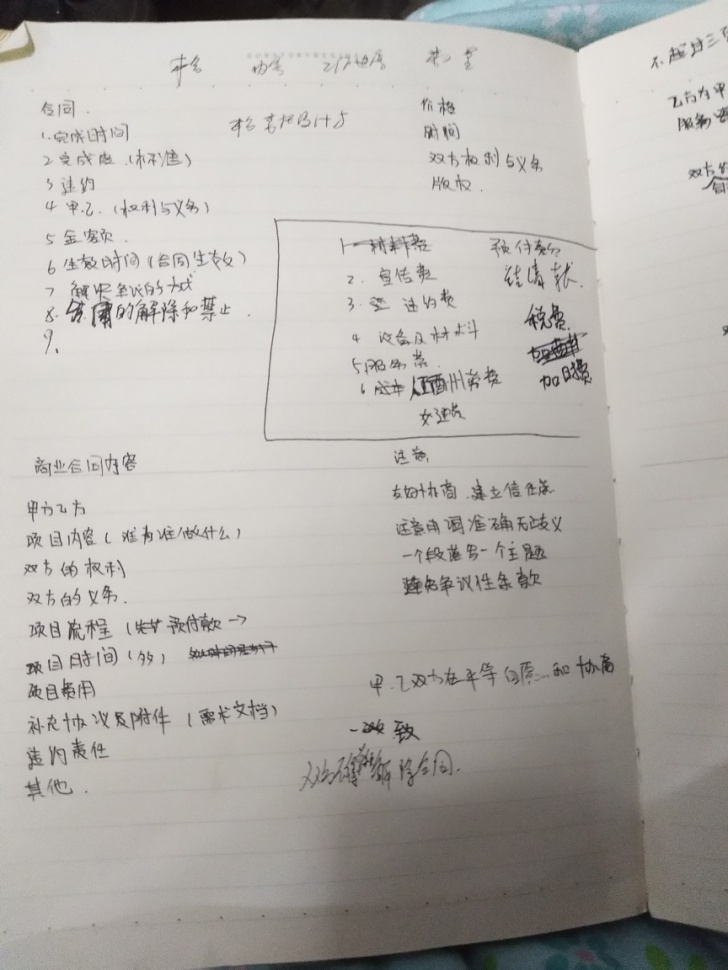 合同.
1.完成时间
2 完成度.(标准)
3 违约
4 甲.乙.(权利与义务)
5 金额
6 生效时间(合同生效)
7 解决争议的方式
8.合同的解除和禁止.
9.
价格
时间
双方权利与义务
版权.
1 材料费
2. 宣传费
3. 违约费
4 设备及材料
5.服务费
6 劳务费
预付款
结清
税费
加班费
商业合同内容
甲方乙方
项目内容(谁为谁做什么)
双方的权利
双方的义务.
项目流程( 预付款→
项目时间( )
项目费用
补充协议及附件(需求文档)
违约责任
其他.
注意
友好协商.建立信任
注意用词准确无歧义
一个段落写一个主题
避免争议性条款
甲.乙双方在平等自愿 和协商
一致
解除合同.
不超过三
乙方为甲
服务
双方